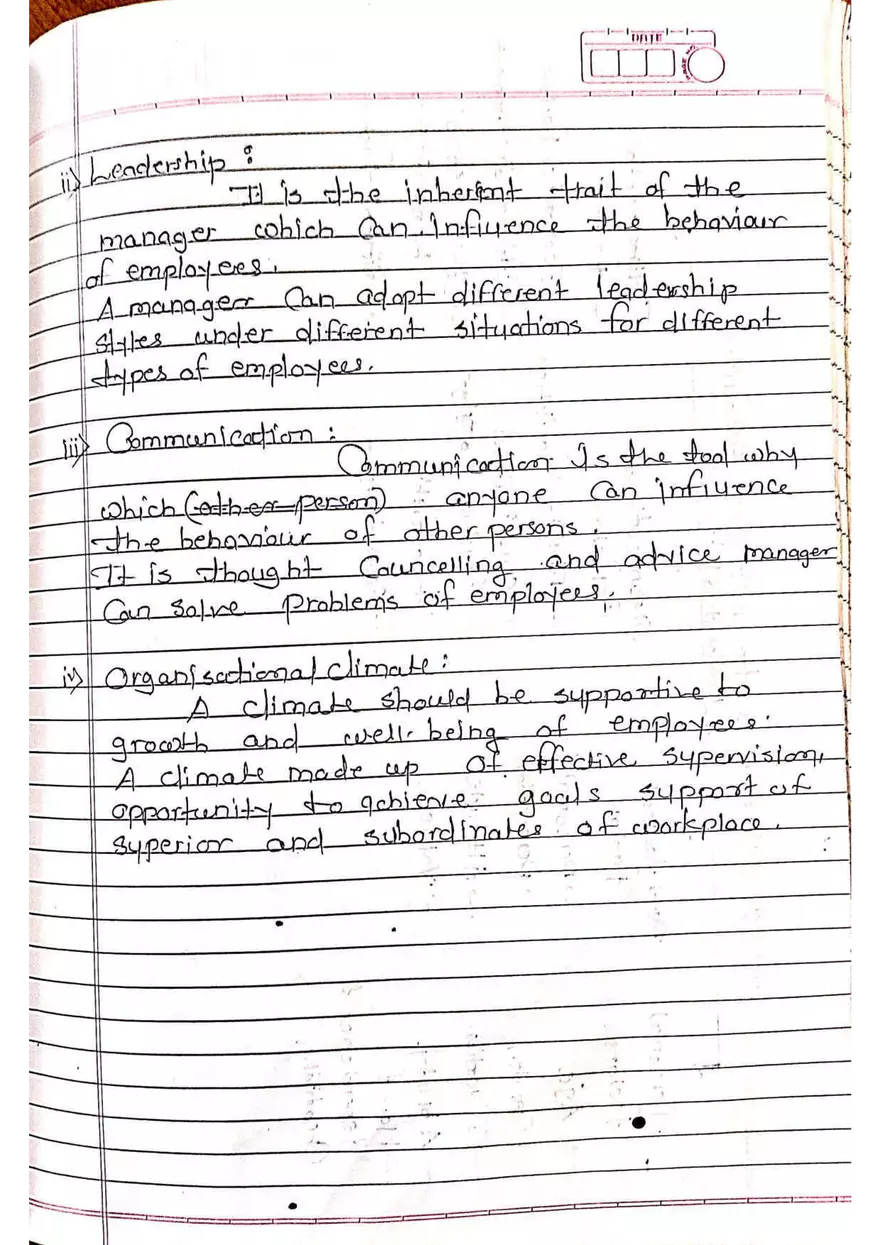 DATE
ii) Leadership :
It is the inherent trait of the
manager which can influence the behaviour
of employees.
A manager can adopt different leadership
styles under different situations for different
types of employees.
iii) Communication :
Communication is the tool why
which (other person) anyone can influence
the behaviour of other persons.
It is thought Councelling and advice manager
can solve problems of employees.
iv) Organisational climate :
A climate should be supportive to
growth and well-being of employees.
A climate made up of effective supervision,
opportunity to achieve goals support of
superior and subordinates of workplace.